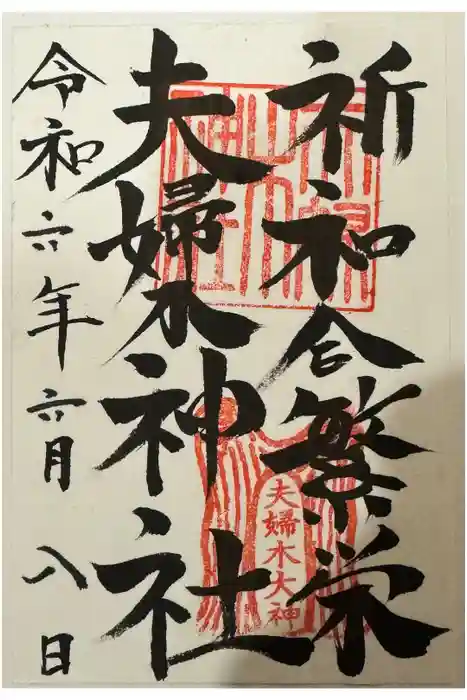 祈和合繁栄
夫婦木神社
令和六年六月八日
夫婦木大神